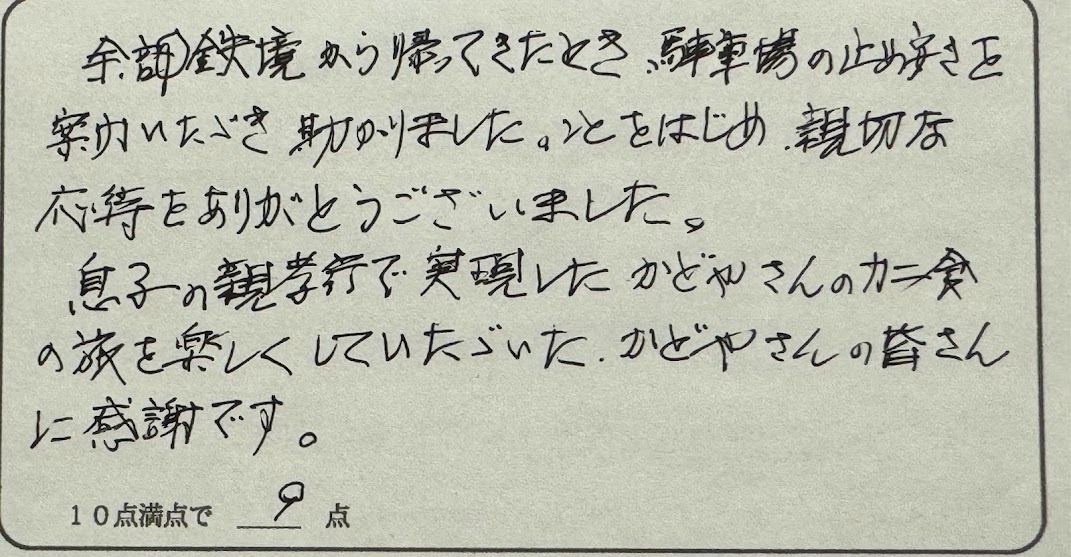 余部鉄境から帰ってきたとき、駐車場の止め安さを
案内いただき 助かりました。ことをはじめ、親切な
応待をありがとうございました。
息子の親孝行で実現した かどやさんのカニ食
の旅を楽しくしていただいた、かどやさんの皆さん
に感謝です。
10点満点で 9 点